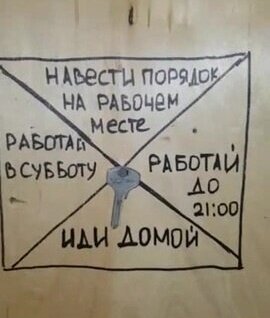 НАВЕСТИ ПОРЯДОК
НА РАБОЧЕМ
МЕСТЕ
РАБОТАЙ
В СУББОТУ
РАБОТАЙ
ДО
21:00
ИДИ ДОМОЙ